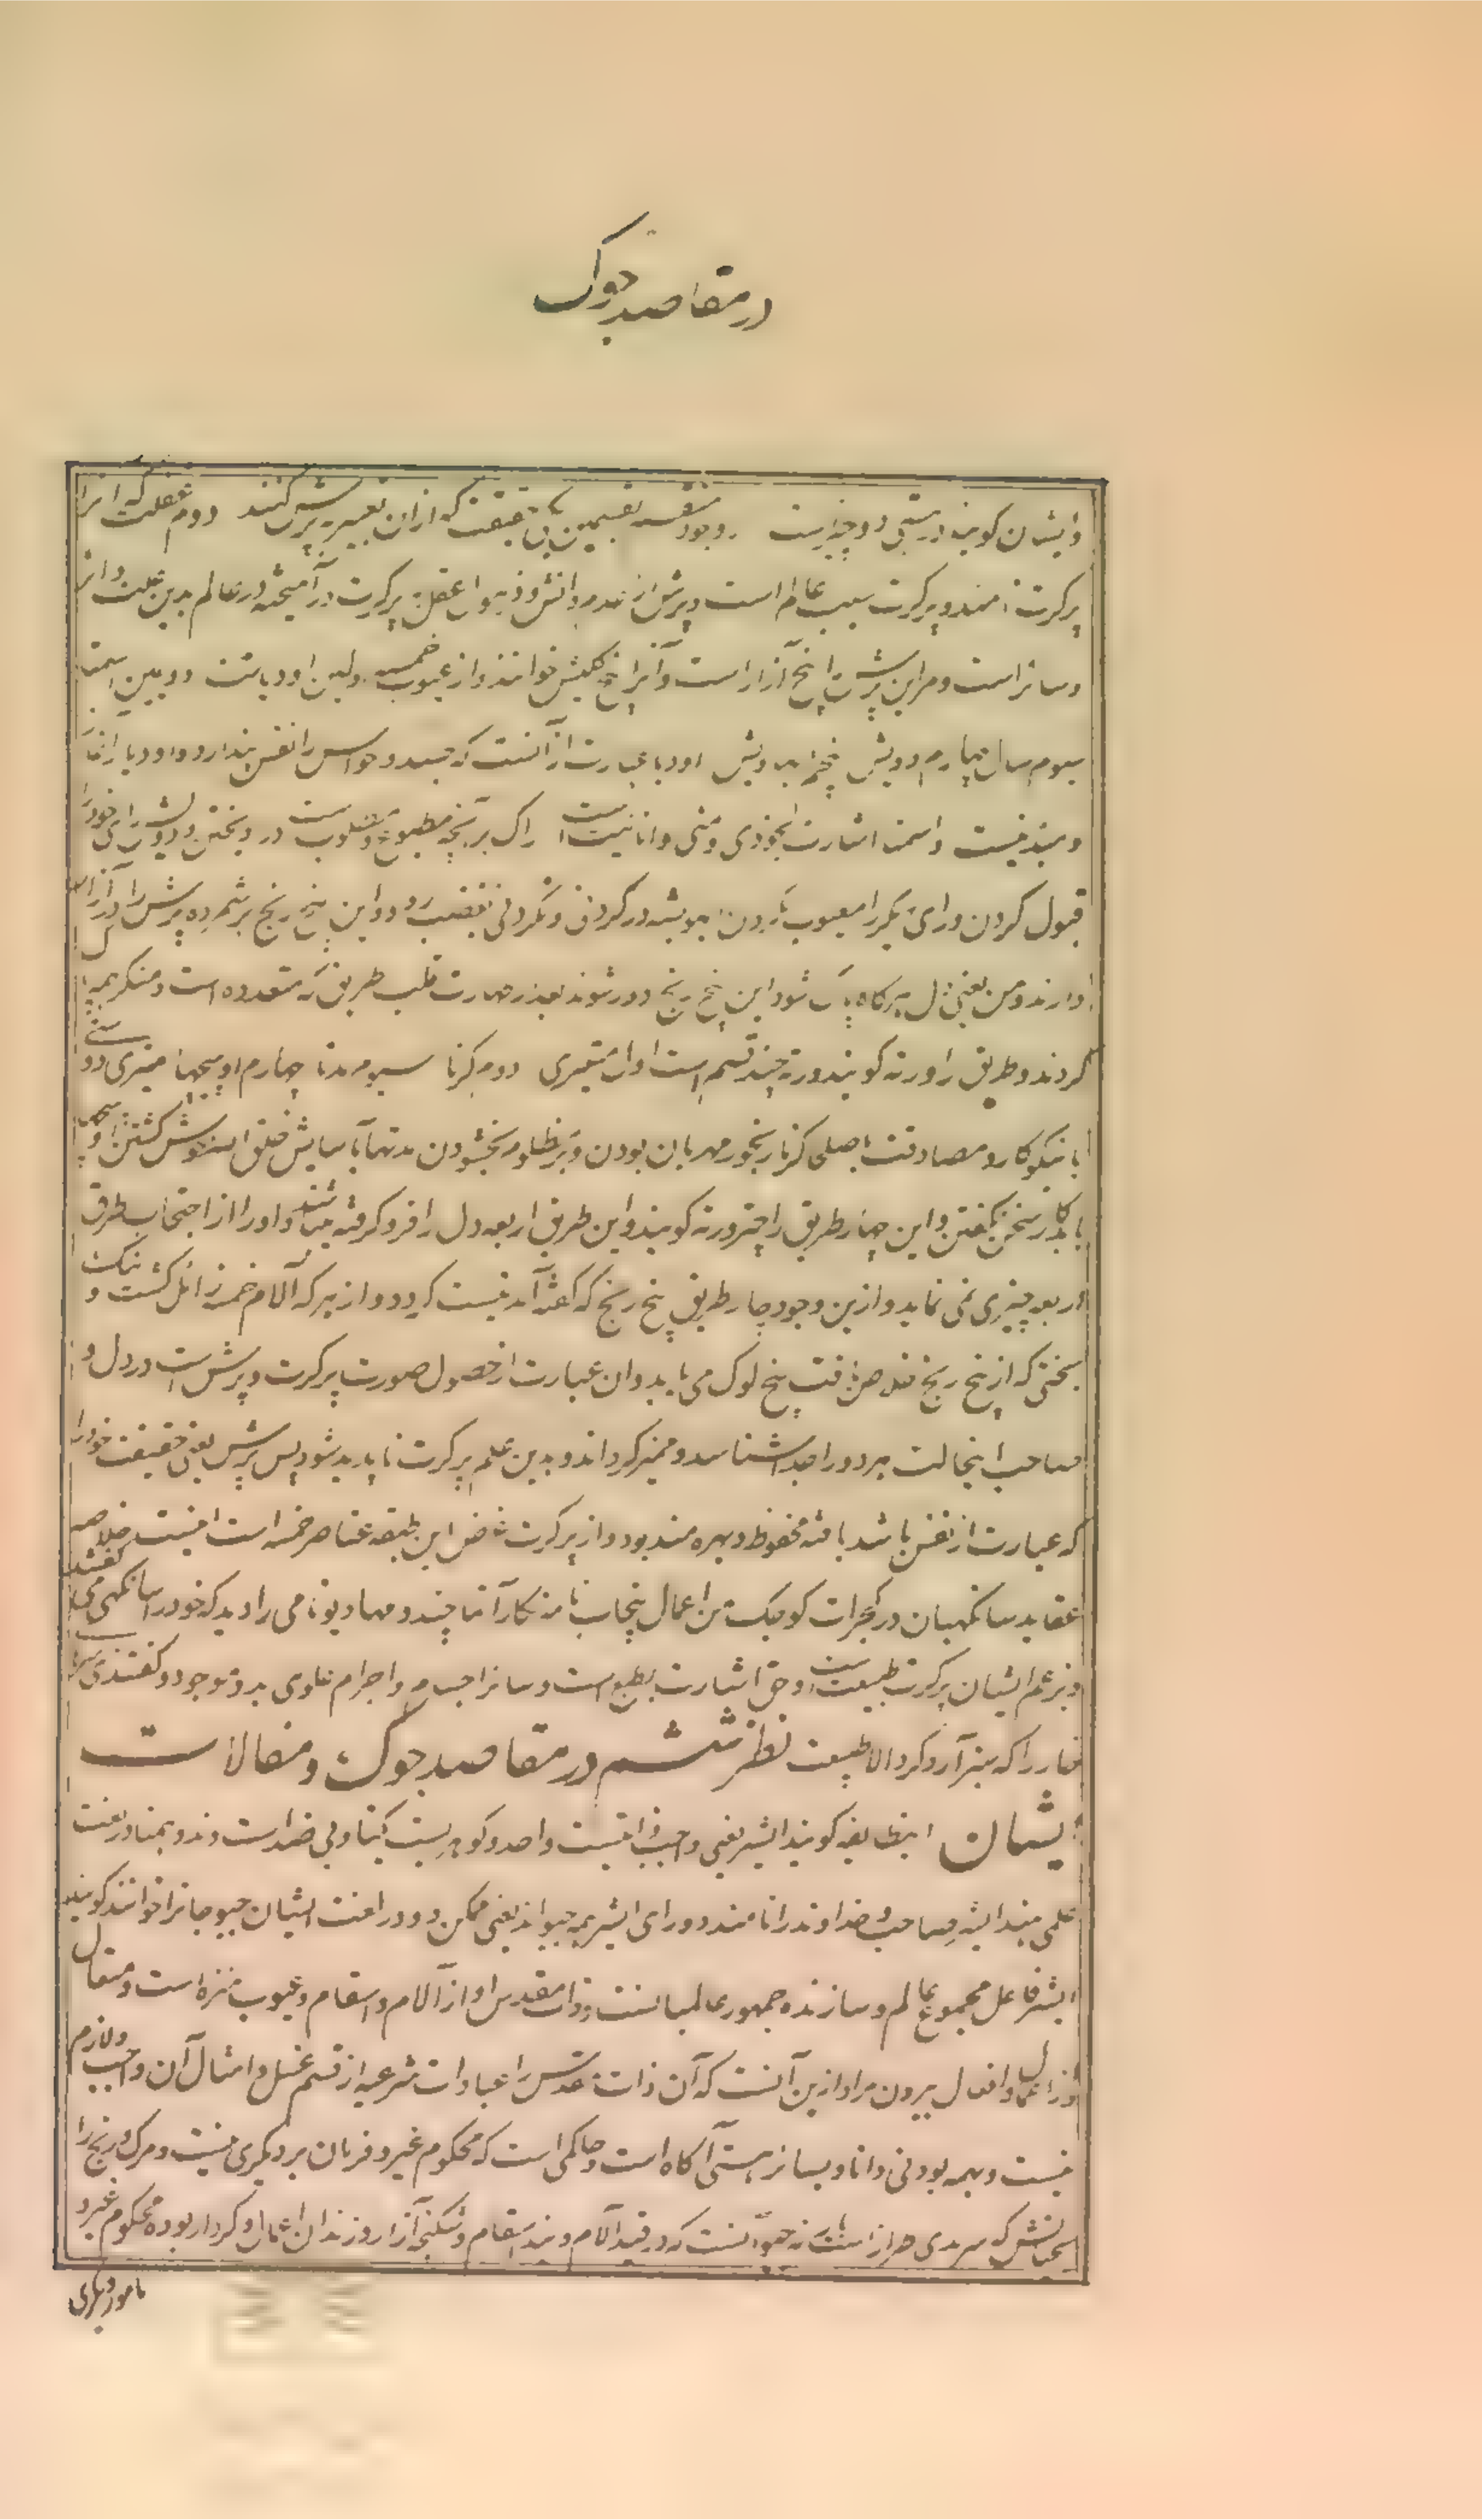 در مقاصد جوک
وایشان کویند در هستی دو چیز است وجود تعیین بی حقیقت که از ان تعبیر بپرش کنند دوم غفلت که انرا
پرکرت نامند و پرکرت سبب عالم است و پرش از عدم دانش و ذهول عقل به پرکرت در آمیخته در عالم بدین علت دائر
و سائر است و مر این پرش را پنج آزار است و آنرا پنج کلیش خوانند و از عیوب خمسه اولین اودیا است دویمین اسمتا
سیوم راک چهارم دویش پنجم ابهنویش اودیا عبارت از آنست که جسد و حواس را نفس پندارد و اودیا را آغاز
و بند نیست و اسمتا اشارت بخودی و منی و انانیت است راک بر آنچه مطبوع و مطلوب است در ویختن و دویش رای خود را
قبول کردن و رای دیکر را معیوب شمردن ابهنویش در کردنی و نکردنی بغضب رود و این پنج رنج بر شمرده پرش را در آزار
دارند و من یعنی دل هرکاه پاک شود این پنج رنج دور شوند بعد از طهارت قلب طریق که متعدده است و منکر همه
کردند و طریق را ورته کویند و ورته چند قسم است اول میتری دوم کرنا سیوم مدتا چهارم اوپیچها میتری دو
با نیکوکار و مصادقت با صلحی کرنا رنجور مهربان بودن و بر مظلوم بخشودن مدتا بآسایش خلق الله خوش کشتن اوپیچها
با بدکار سخن نکفتن و این چهار طریق را چتر ورته کویند و این طریق اربعه دل را فرو کرفته میباشند و اورا از اجتجاب طرق
اربعه چیزی نمی نماید و از ین وجود چار طریق پنج رنج که کفته آمد نیست کردد و از هر که آلام خمسه زائل کشت و
سختی که از پنج رنج خلاص یافت پنج لوک می یابد و ان عبارت از حصول صورت پرکرت و پرش است در دل و
صاحب اینحالت هر دو را جدا شناسد و ممیز کرداند و بدین علم پرکرت ناپدید شود پس پرش یعنی حقیقت خود را
که عبارت از نفس باشد یافته محفوظ و بهره مند بود و از پرکرت غرض این طبقه عناصر خمسه است اینست خلاصه
عقاید سانکهیان در کجرات کوچک من اعمال پنجاب نامه نکار آتما چند و مهادیو نامی را دید که خود را سانکهی می کفتند
و بزعم ایشان پرکرت طبیعت است و حق اشارت بطبع است و سائر اجسام و اجرام علوی بدو موجود و کفتندی
خار را که تیز آرد کرد الا طبیعت نظر ششم در مقاصد جوک و مقالات
ایشان اینطایفه کویند ایشر یعنی واجب ذاتیست واحد و کوهریست یکتا و بی ضد است و ند و همتا در لغت
علمی هند ایشر صاحب و خداوند را نامند و ورای ایشر همه جیو اند یعنی ممکن و در لغت ایشان جیو جانرا خوانند کویند
ایشر فاعل مجموع عالم و سازنده جمهور عالمیانست و ذات مقدس او از آلام و اسقام و عیوب منزه است و متعال
از اعمال و افعال بیرون مراد ازین آنست که آن ذات مقدس را عبادات شرعیه از قسم غسل و امثال آن واجب و لازم
نیست و بهمه بودنی دانا و بسائر هستی آکاه است و حاکمی است که محکوم غیر و فرمان بر دیکری نیست و مرک و رنج را
که سرمدی طراز است نه جیو آنست که در قید آلام و بند اسقام و شکنجه آزار و زندان اعمال و کردار بوده محکوم غیر و
مامور دیکری